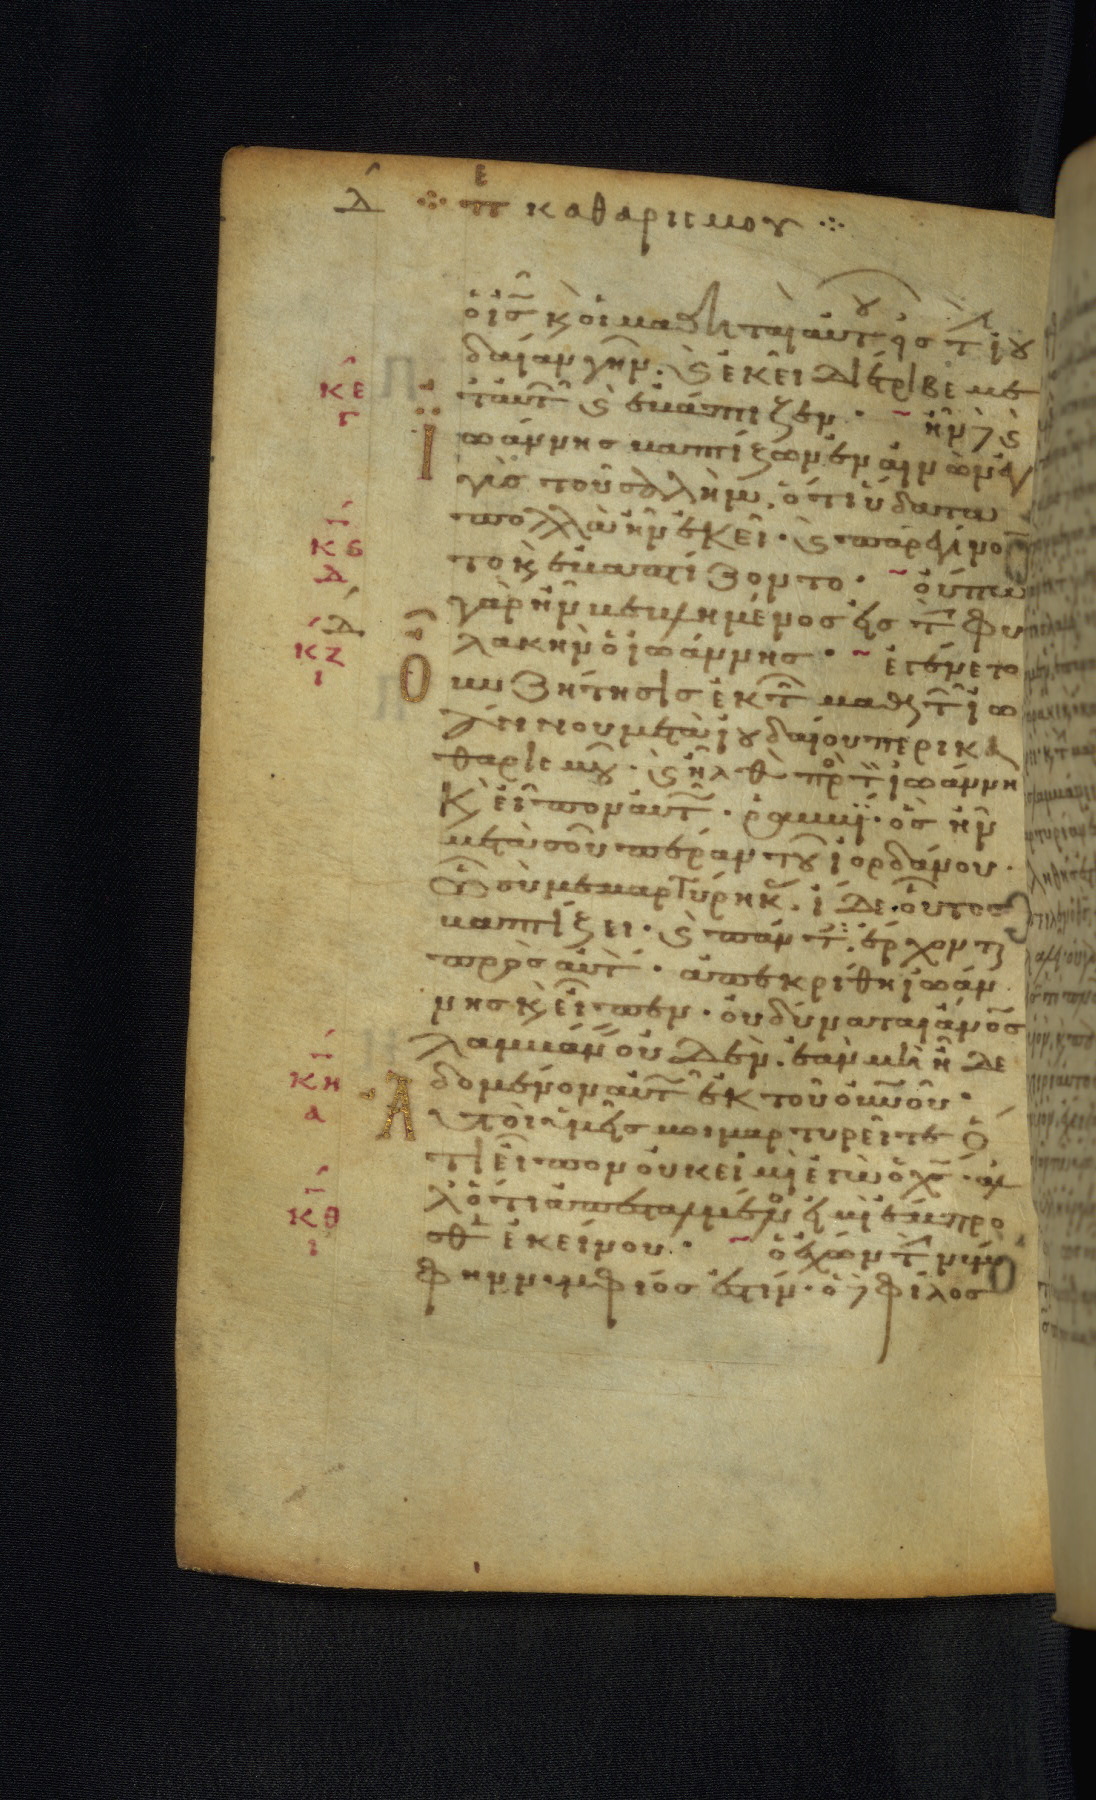 Δ ⁘ πε καθαρισμου ⁘
ὁ ἰ̅ς̅ κ̀ οἱ μαθηταὶ ἀυτοῦ εἰς τ ἰου
δαίαν γῆν· ϗ ἐκεῖ διέτριβε με
κε γ τ ἀυτ ϗ ἐβάπτιζεν· ~ ἦν δὲ ϗ Ἰ
ωάννης βαπτίζων ἐν αἰνὼν ἐγ
γὺς τοῦ σαλὴμ, ὅτι ὕδατα
πολλὰ ἦν ἐκεῖ· ϗ παρεγίνον
κϛ δ το κ̀ ἐβαπτίζοντο· ~ οὔπω
γὰρ ἦν βεβλημένος εἰς τ φυ
Δ κζ ι λακὴν ὁ ἰωάννης· ~ ἐγένετο
Ο υν ζήτησις ἐκ τ μαθητ ἰω
άννου μετὰ ἰουδαίου περὶ κα
θαρισμοῦ· ϗ ἦλθ πρ τ ἰωάννη
κ̀ εἶπον ἀυτ· ῥαββΐ· ὃς ἦν
μετὰ σοῦ πέραν τοῦ ἰορδάνου·
ᾧ σὺ μεμαρτύρηκ· ἴδε οὗτος
βαπτίζει· ϗ πάντ ἔρχοντ
πρὸς ἀυτ· ἀπεκρίθη ἰωάν
νης κ̀ εἶπεν· οὐ δύναται ἀνος
λαμβάν οὐδὲν· ἐὰν μὴ ἦ δε
κη α δομένον ἀυτ ἐκ τοῦ οὐνοῦ·
Α υτοὶ ὑμεῖς μοι μαρτυρεῖτε ὅ
τι εἶπον οὐκ εἰμὶ ἐγὼ ὁ χς· ἀλ
κθ ι λ ὅτι ἀπεσταλμένο εἰμὶ ἔμπρο
σθ ἐκείνου· ~ ὁ ἔχων τ νύμ Ο
φην νυμφίος ἐστίν· ὁ δὲ φίλος